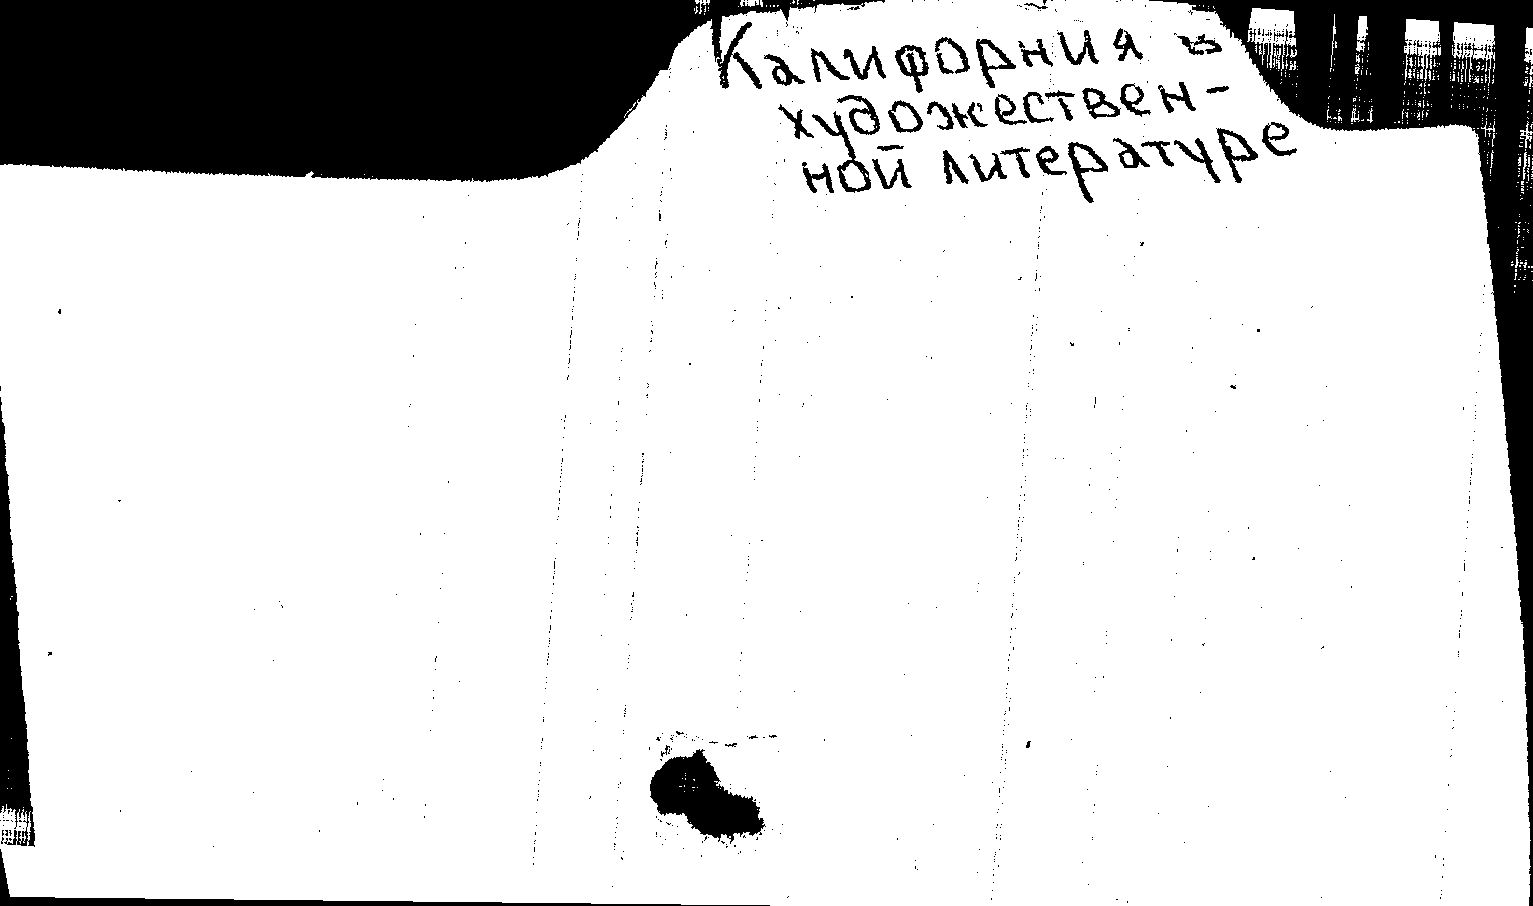 Калифорния в
художествен-
ной литературе